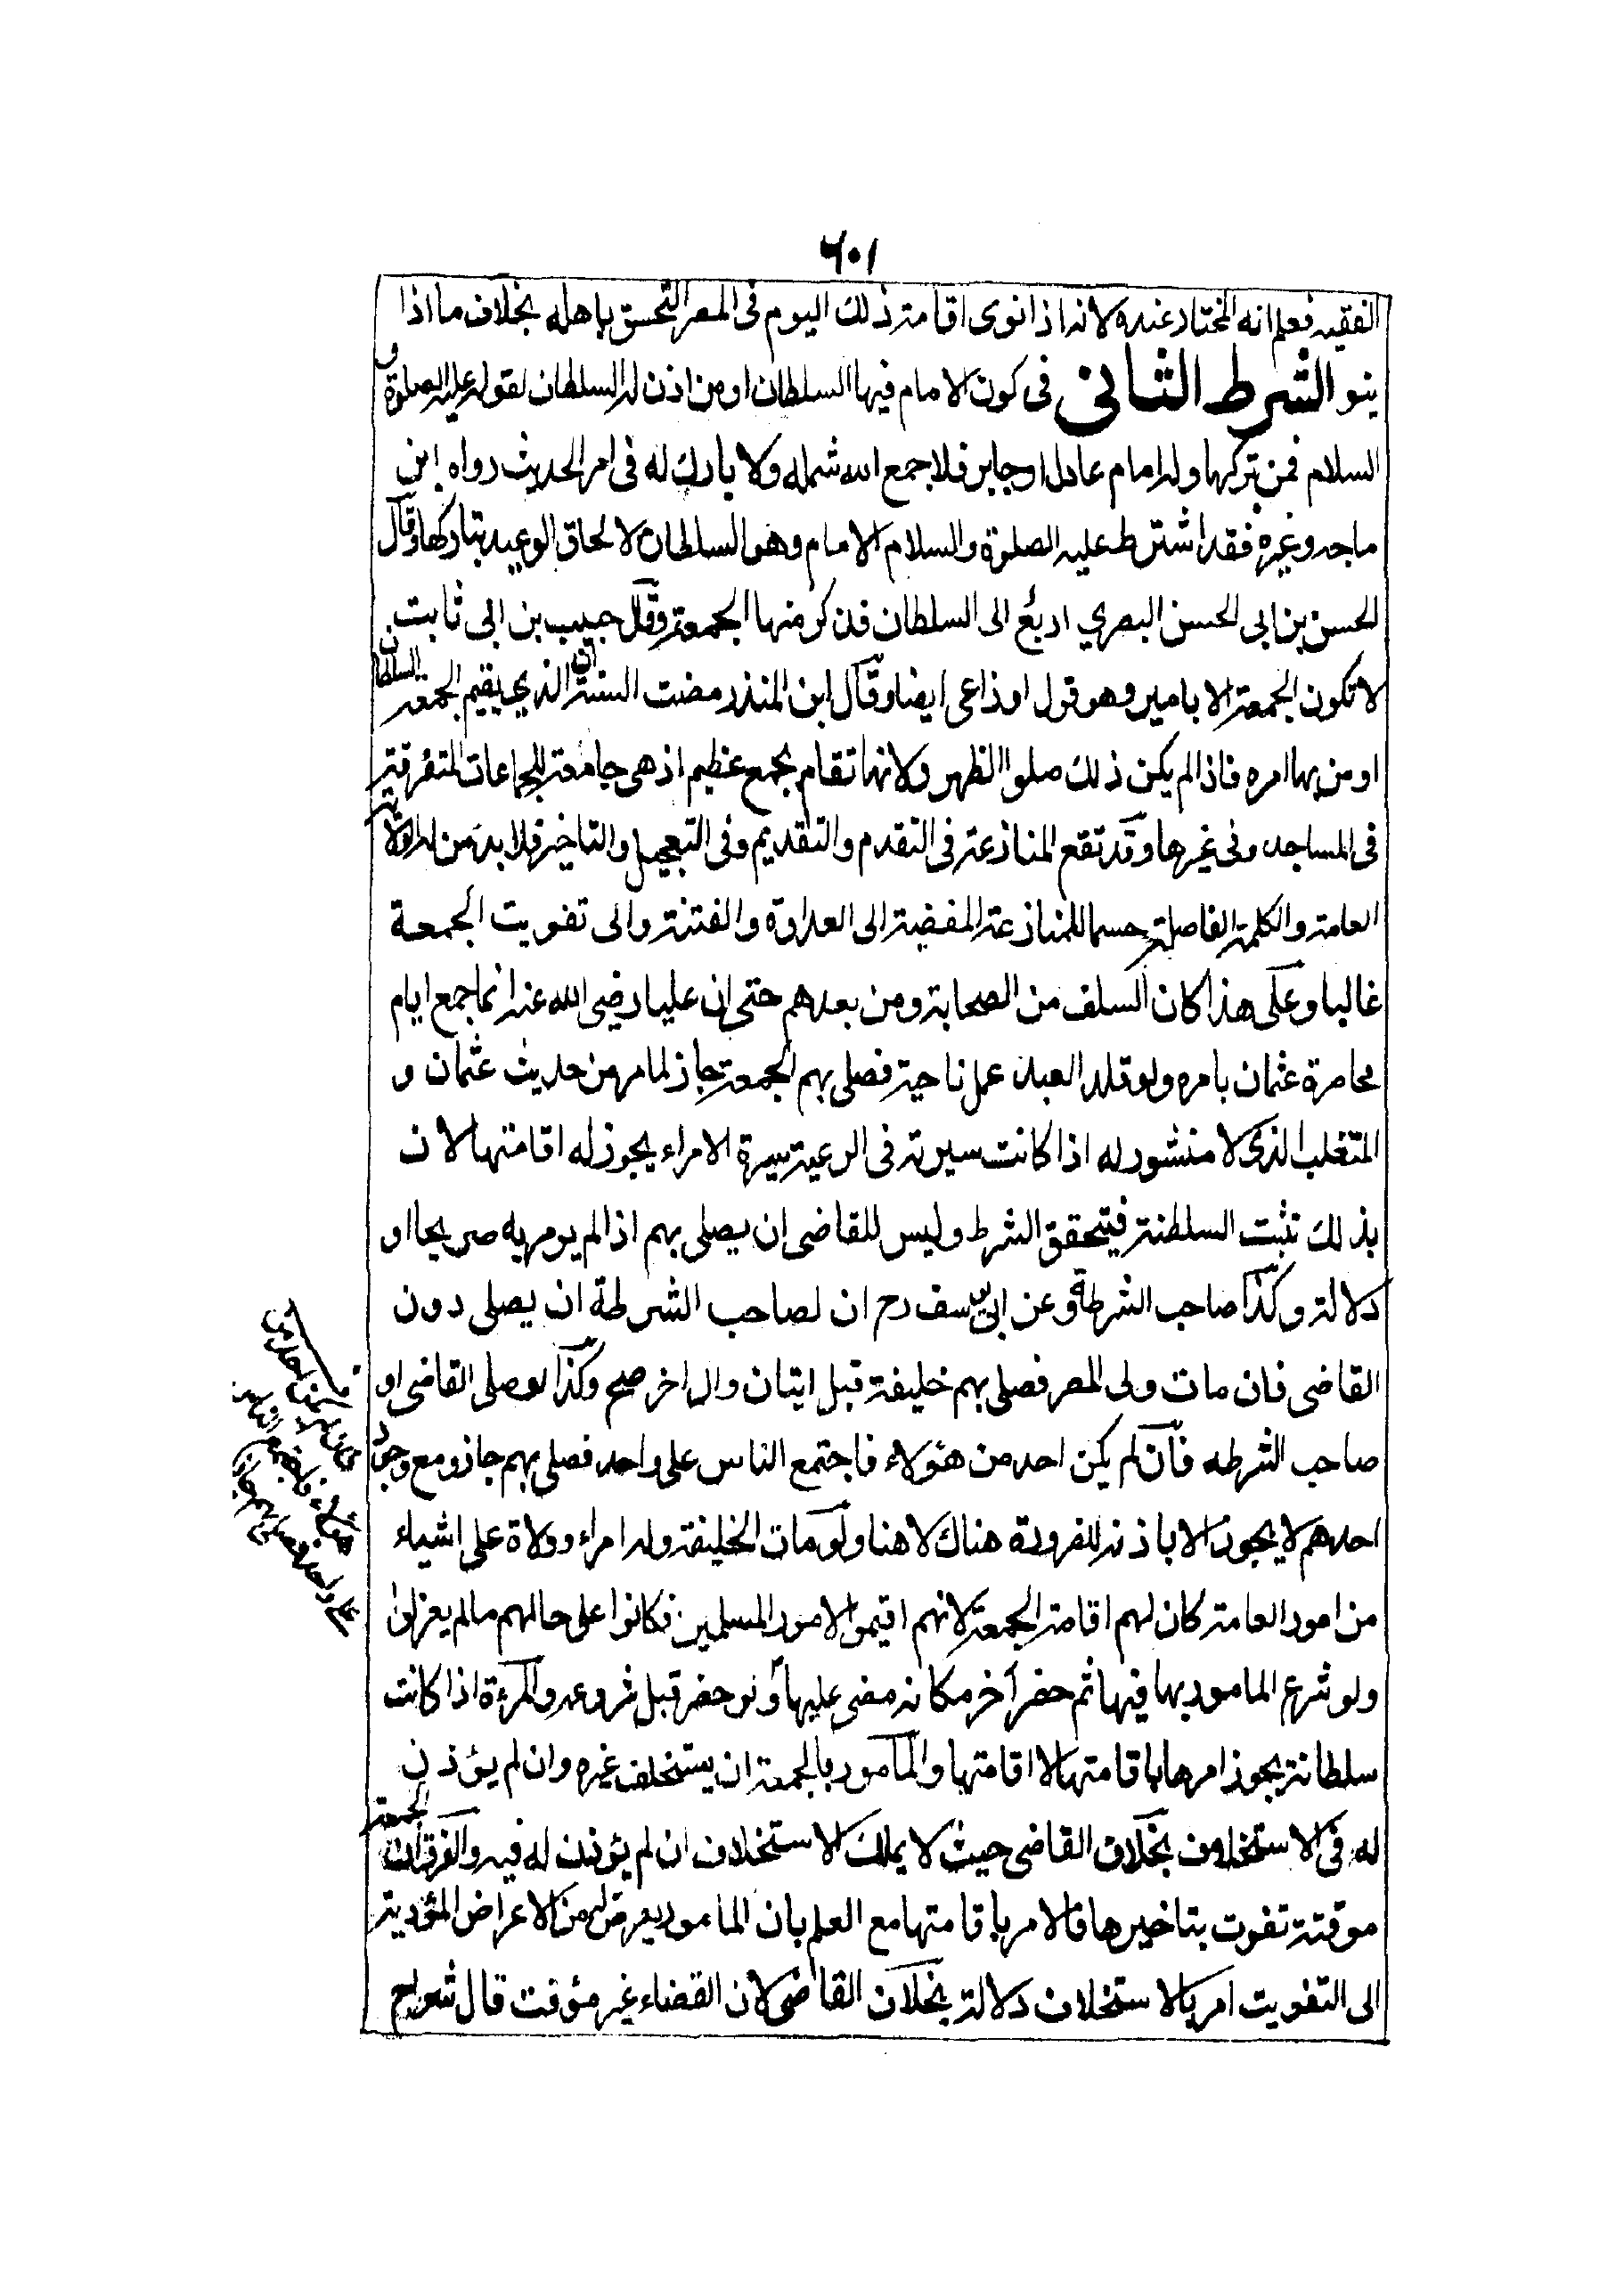 ٦٠١
الفقيه فعلم انه المختار عنده لانه اذا نوى اقامة ذلك اليوم فى المصر التحق باهله بخلاف ما اذا
ينو الشرط الثانى فى كون الامام فيها السلطان او من اذن له السلطان لقوله عليه الصلوة و
السلام فمن تركها وله امام عادل او جاير فلا جمع الله شمله ولا بارك له فى امر الحديث رواه ابن
ماجه وغيره فقد اشترط عليه الصلوة والسلام الامام وهو السلطان لالحاق الوعيد بتاركها وقال
الحسن بن ابى الحسن البصري اربع الى السلطان فذكر منها الجمعة وقال حبيب بن ابى ثابت
لا تكون الجمعة الا بامير وهو قول اوذاعى ايضا وقال ابن المنذر مضت السنة ان الذي يقيم الجمعة السلطان
او من بها امره فاذا لم يكن ذلك صلوا الظهر ولانها تقام بجمع عظيم اذ هى جامعة للجماعات المتفرقة
فى المساجد وفى غيرها وقد تقع المنازعة فى التقدم والتقديم وفى التعجيل والتاخير فلا بد من الولاية
العامة والكلمة الفاصلة حسما للمنازعة المفضية الى العداوة والفتنة والى تفويت الجمعة
غالبا وعلى هذا كان السلف من الصحابة ومن بعدهم حتى ان عليا رضى الله عنه انما جمع ايام
محاصرة عثمان بامره ولو قلد العبد عمل ناحية فصلى بهم الجمعة جاز لما مر من حديث عثمان و
المتغلب الذى لا منشور له اذا كانت سيرته فى الرعية سيرة الامراء يجوز له اقامتها لان
بذلك تثبت السلطنة فيتحقق الشرط وليس للقاضى ان يصلى بهم اذا لم يومر به صريحا او
دلالة وكذا صاحب الشرطة وعن ابى يوسف رح ان لصاحب الشرطة ان يصلى دون
القاضى فان مات ولى المصر فصلى بهم خليفة قبل اتيان وال اخر صح وكذا لو صلى القاضى او
صاحب الشرطه فان لم يكن احد من هؤلاء فاجتمع الناس على واحد فصلى بهم جاز ومع وجود
احدهم لا يجوز الا باذنه للضرورة هناك لا هنا ولو مات الخليفة وله امراء وولاة على اشياء
من امور العامة كان لهم اقامة الجمعة لانهم اقيموا لامور المسلمين فكانوا على حالهم ما لم يعزلوا
ولو شرع المامور بها فيها ثم حضر آخر مكانه مضى عليها ولو حضر قبل شروعه والمرءة اذا كانت
سلطانة يجوز امرها باقامتها لا اقامتها والمامور بالجمعة ان يستخلف غيره وان لم يؤذن
له فى الاستخلاف بخلاف القاضى حيث لا يملك الاستخلاف ان لم يؤذن له فيه والفرق ان الجمعة
موقتة تفوت بتاخيرها فالامر باقامتها مع العلم بان المامور يعرض له من الاعراض المؤدية
الى التفويت امر بالاستخلاف دلالة بخلاف القاضى لان القضاء غير مؤقت قال شراح